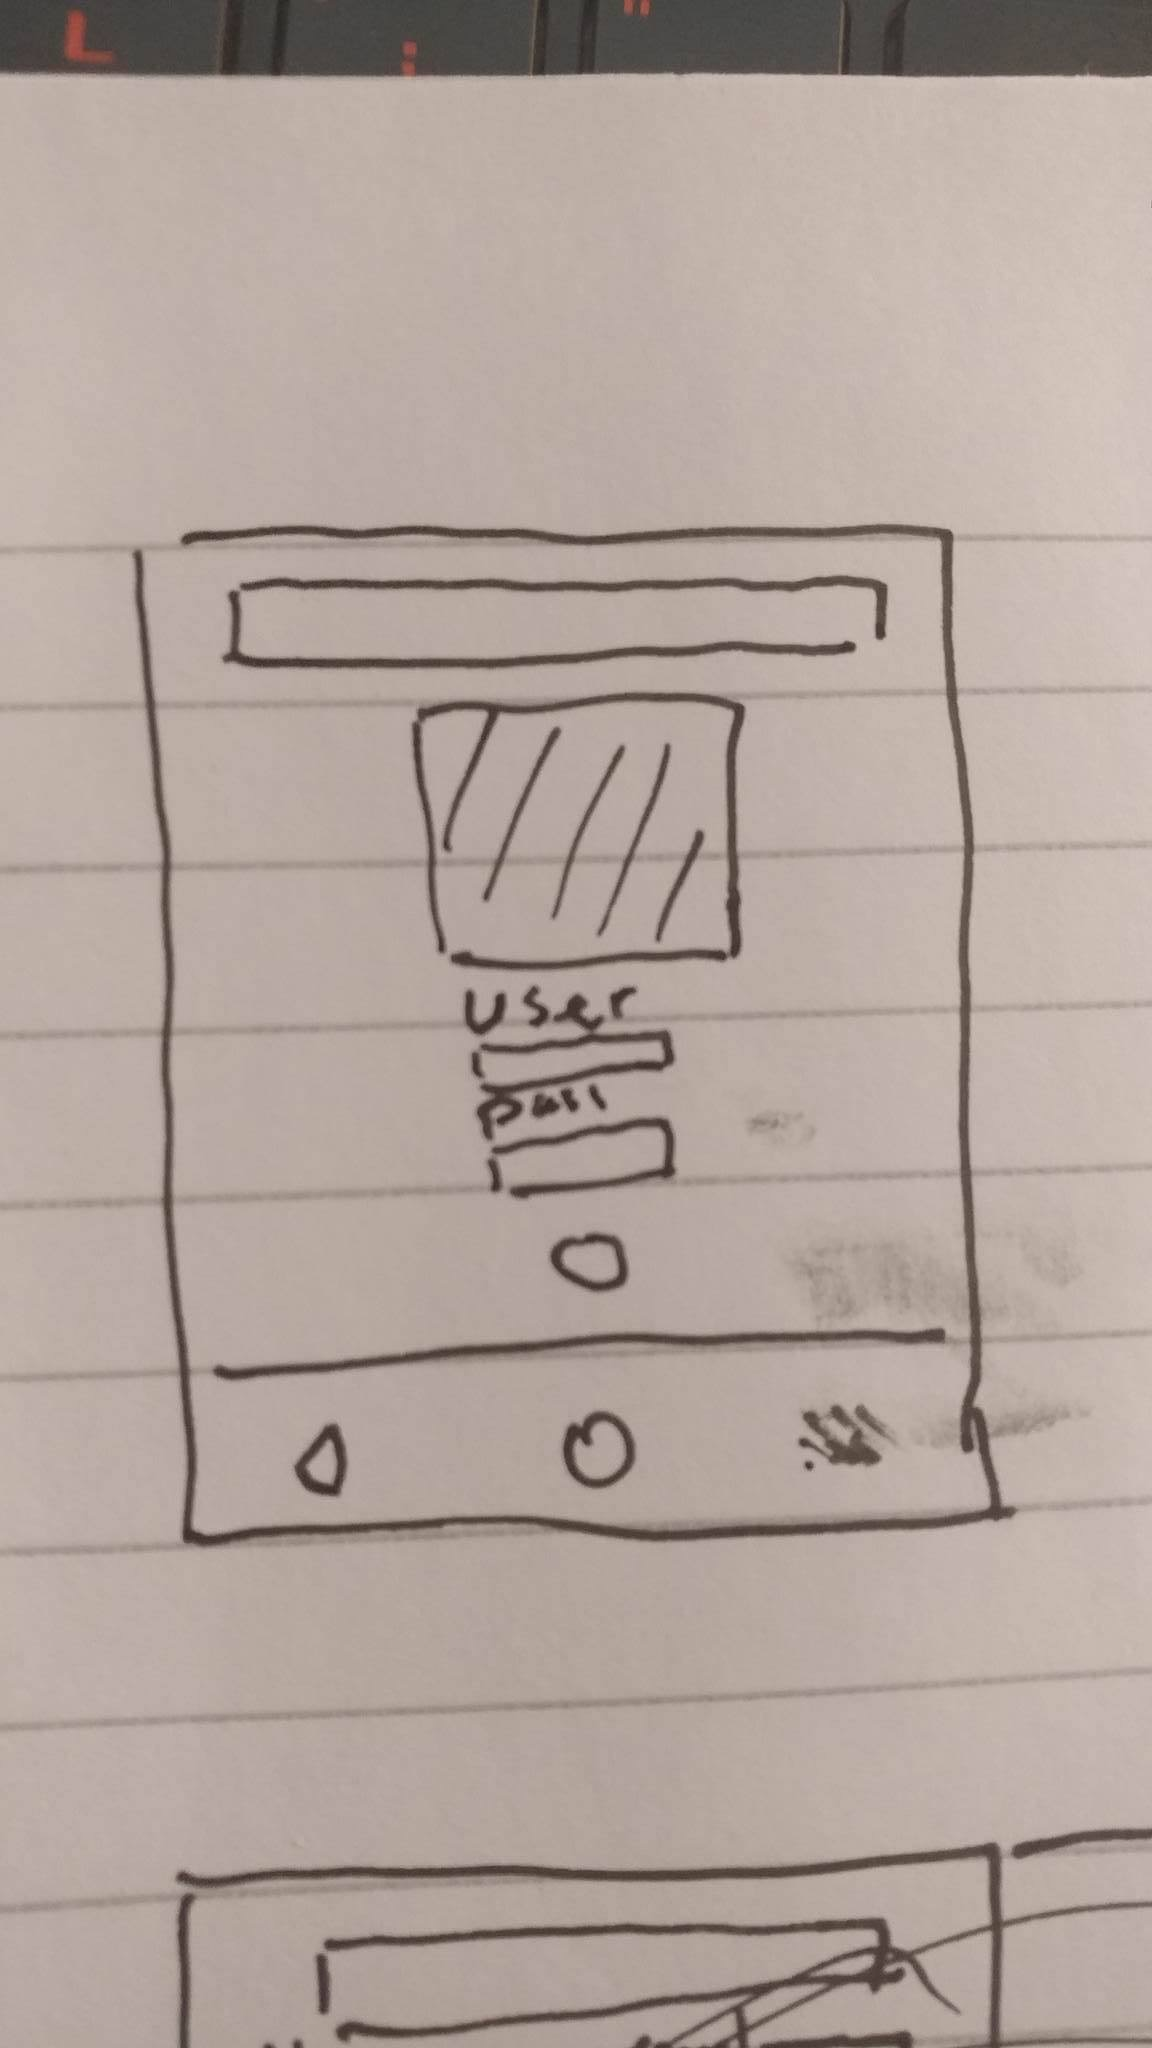 L
User
pass